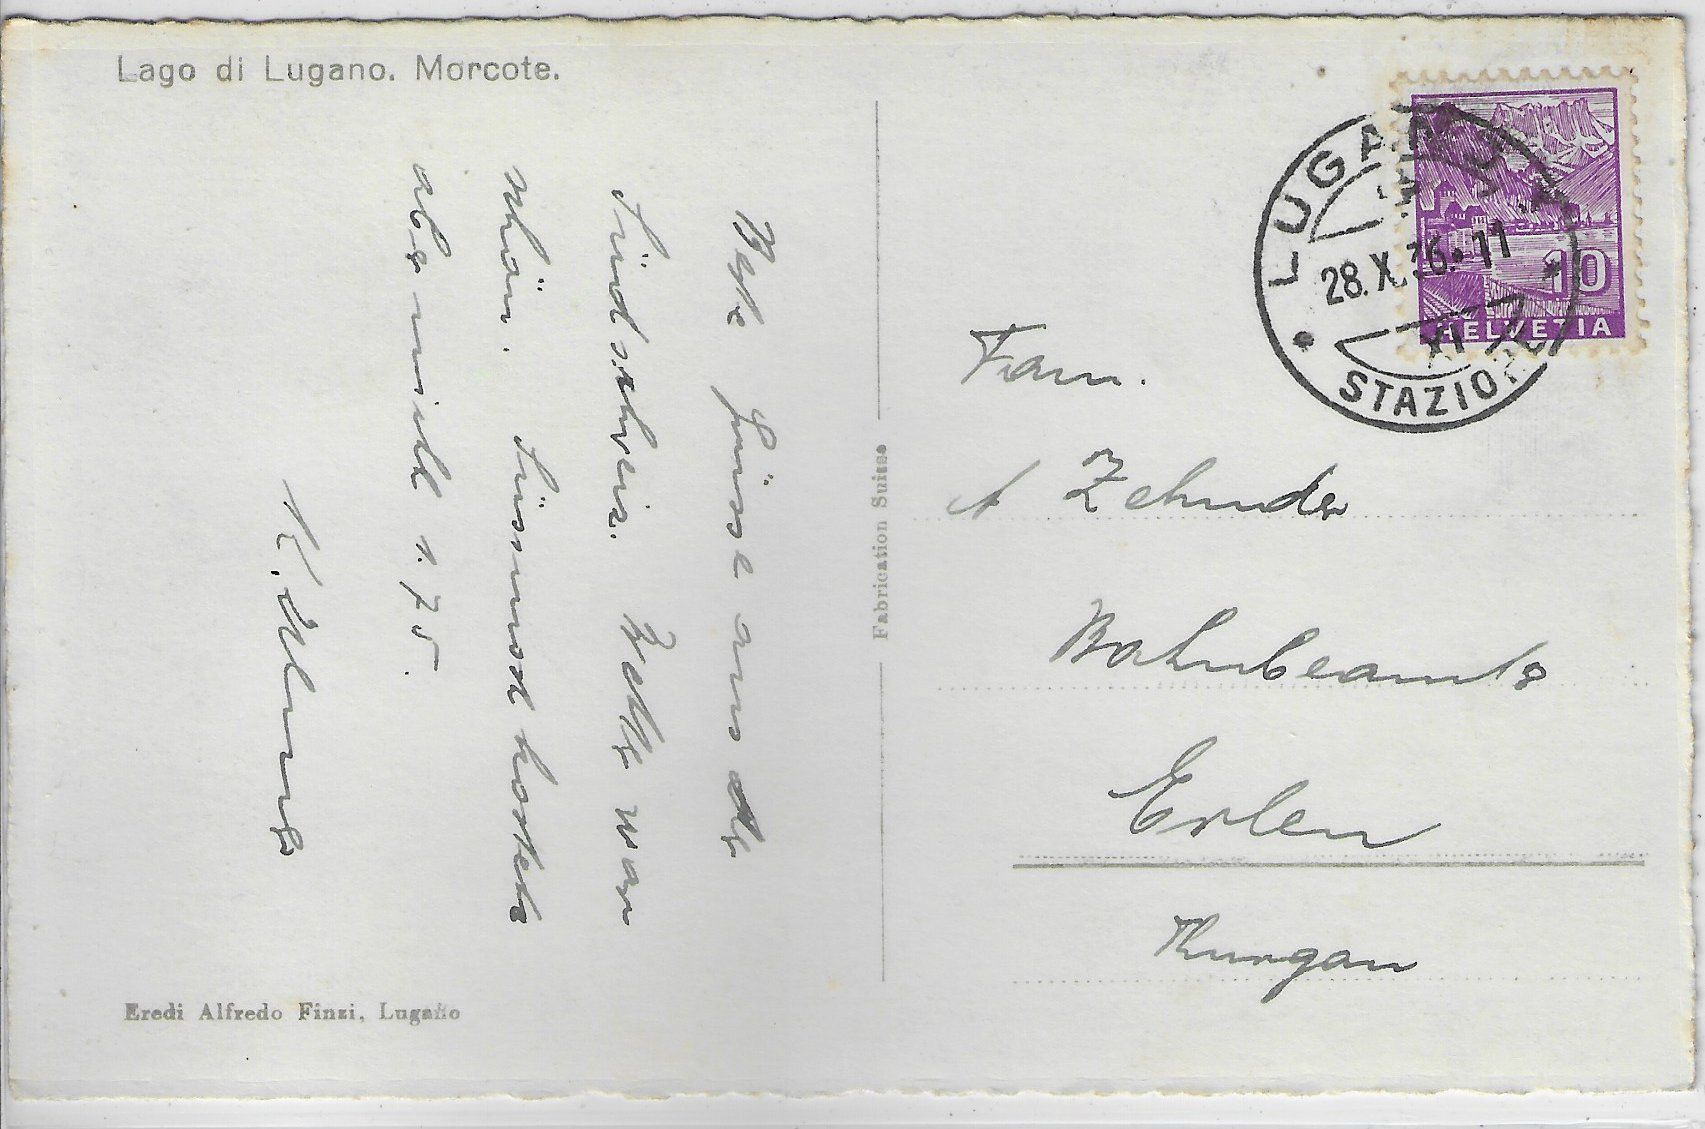 Lago di Lugano. Morcote.
Beste Grüsse aus der
Südschweiz. Wetter war
schön. Süssmost kostete
aber wird 1.75.
K.
Eredi Alfredo Finzi, Lugano
Fabrication Suisse
LUGANO
28.X.36. 11
XI
STAZIONE
10
HELVETIA
Fam.
A Zehnder
Bahnbeamter
Erlen
Thurgau